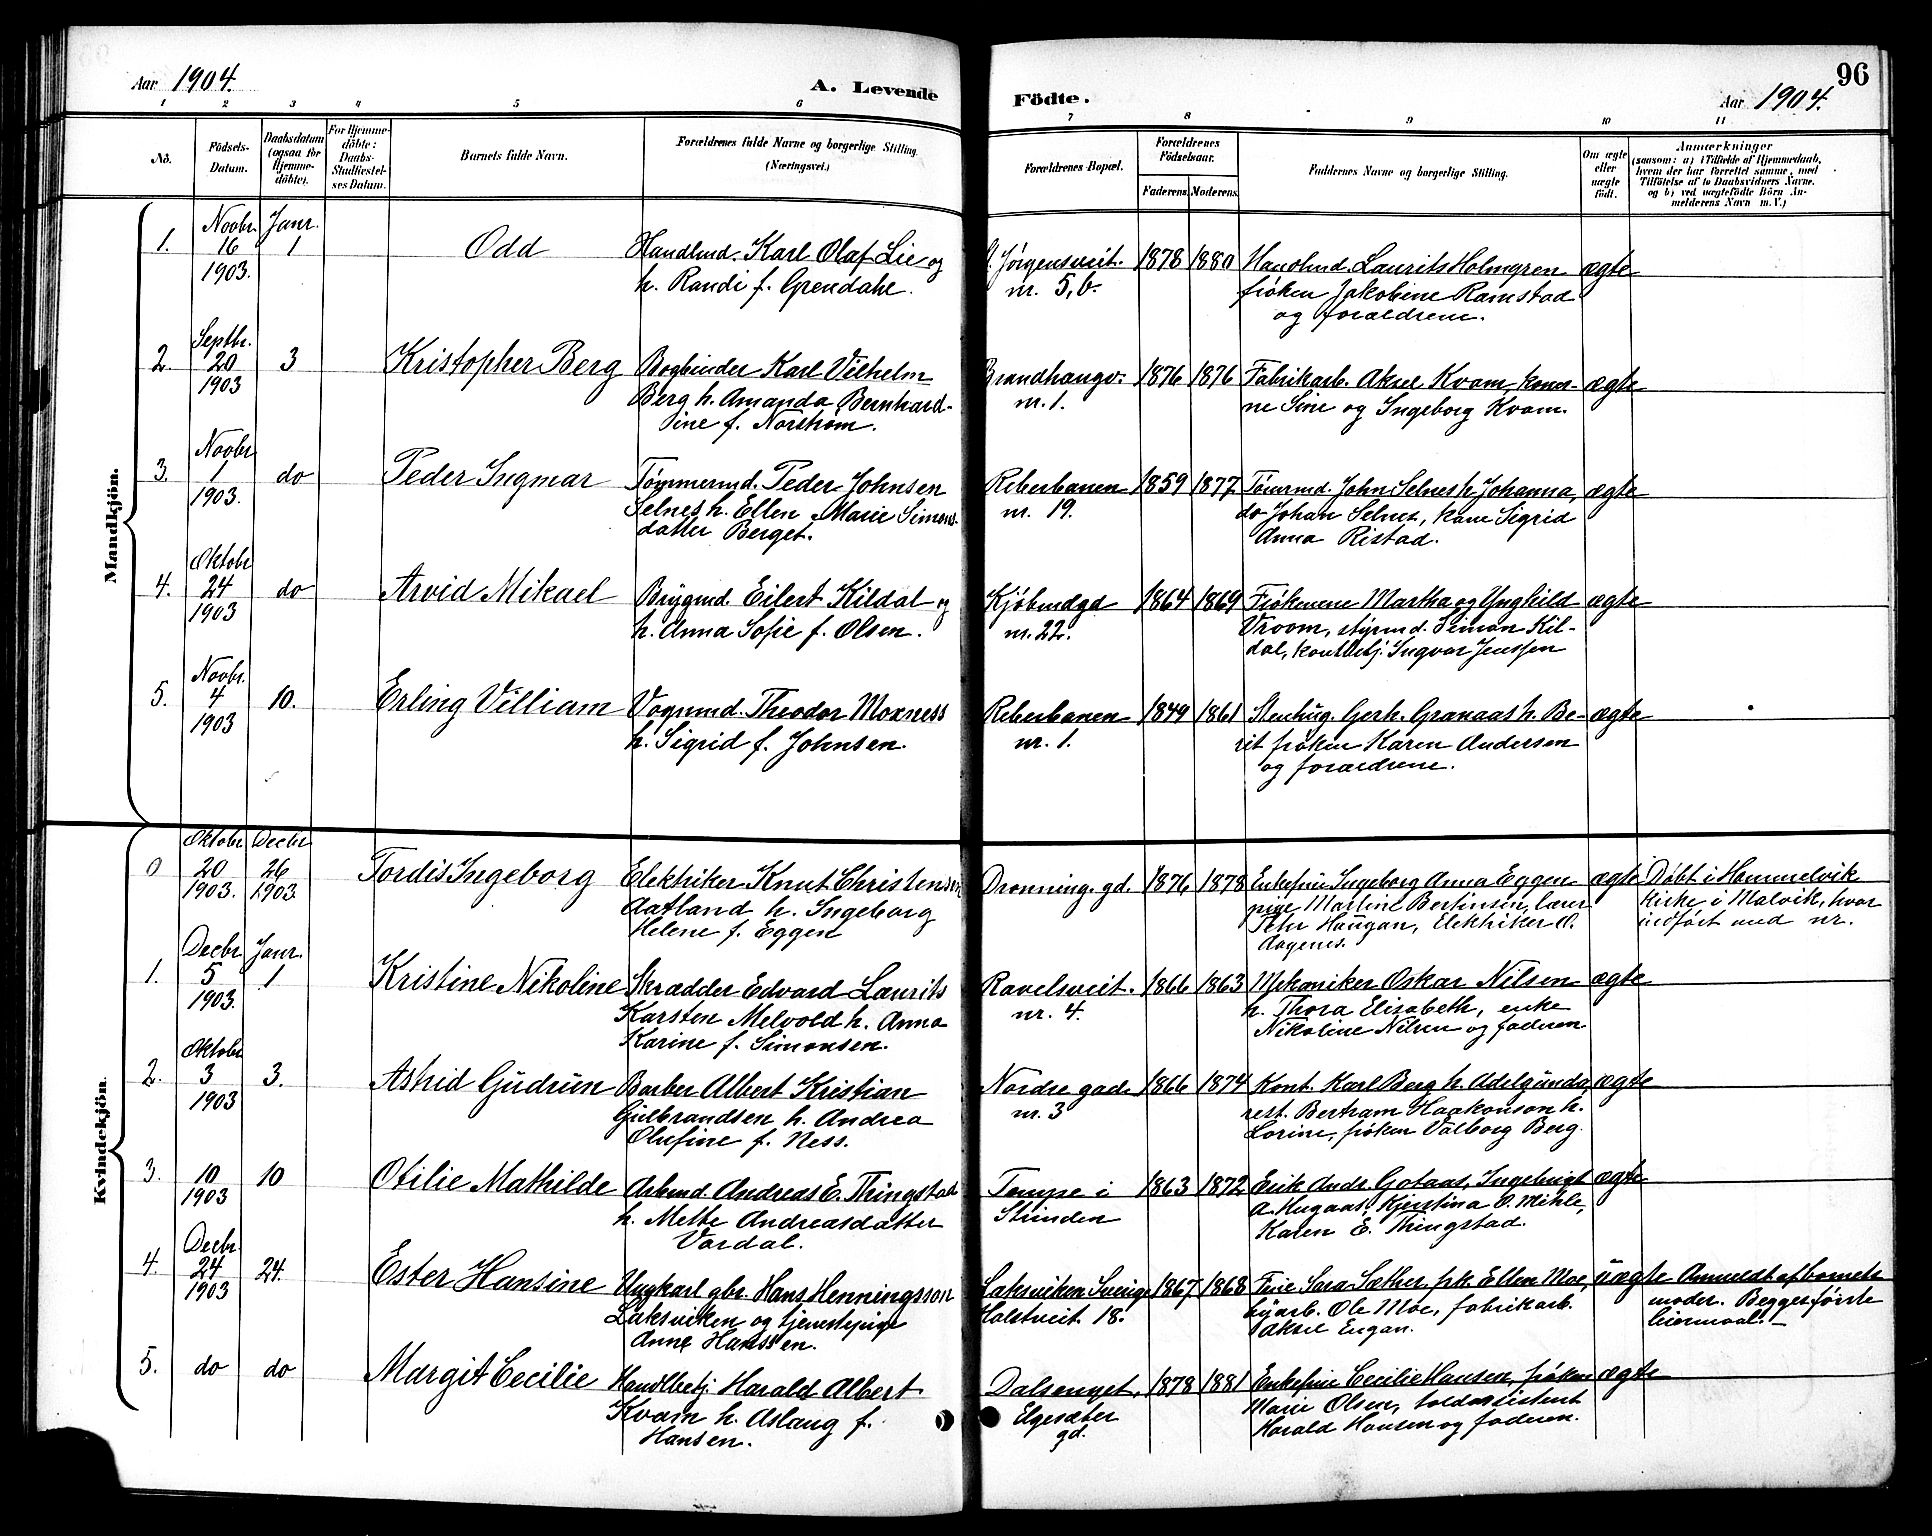 Aar 1904.
A. Levende
Födte.
Aar 1904.
96
1 2 3 4 5 6 7 8 9 10 11
No.
Födsels-
Datum.
Daabsdatum
(ogsaa for
Hjemme-
döbte).
For Hjemme-
döbte:
Daabs-
Stadfæstel-
ses Datum.
Barnets fulde Navn.
Forældrenes fulde Navne og borgerlige Stilling.
(Næringsvei.)
Forældrenes Bopæl.
Forældrenes
Födselsaar.
Faderens. Moderens.
Faddernes Navne og borgerlige Stilling.
Om ægte
eller
uægte
födt.
Anmærkninger
(saasom: a) i Tilfælde af Hjemmedaab,
hvem der har forrettet samme, med
Tilföielse af to Daabsvidners Navne,
og b) ved uægtefödte Börn An-
melderens Navn m. V.)
Mandkjön.
1.
Novbr.
16
1903.
Janr.
1
Odd
Handlmd. Karl Olaf Lie og
h. Randi f. Grendahl.
Jørgensveit.
nr. 5, b.
1878 1880
Handlmd. Laurits Holmgren
frøken Jakobine Ramstad
og forældrene.
ægte
2.
Septbr.
20
1903
3
Kristopher Berg
Bogbinder Karl Vilhelm
Berg h. Amanda Bernhard-
sine f. Norstrøm.
Brandhaugv.
nr. 1.
1876 1876
Fabrikarb. Aksel Kvam, koner-
ne Sine og Ingeborg Kvam.
ægte
3.
Novbr
1
1903.
do
Peder Ingmar
Tømmermd. Peder Johnsen
Selnes h. Ellen Marie Simons-
datter Berget.
Reberbanen
nr. 19.
1859 1877
Tømrmd. John Selnes h. Johanna,
do Johan Selnes, kone Sigrid
Anna Ristad.
ægte
4.
Oktobr
24
1903
do
Arvid Mikael
Brygmd. Eilert Kildal og
h. Anna Sofie f. Olsen.
Kjøbmdgd
nr. 22.
1864 1869
Frøknene Martha og Ynghild
Vroom, styrmd. Simon Kil-
dal, kontbetj. Ingvar Jenssen
ægte
5.
Novbr.
4
1903
10.
Erling Villiam
Vognmd. Theodor Moxness
h. Sigrid f. Johnsen.
Reberbanen
nr. 1.
1849 1861
Stenhug. Gerh. Granaas h. Be-
rit frøken Karen Andersen
og forældrene.
ægte
Kvindekjön.
0
Oktobr
20
1903.
Decbr
26
1903.
Tordis Ingeborg
Elektriker Knut Christensen
Aatland h. Ingeborg
Helene f. Eggen
Dronning. gd.
1876 1878
Enkefrue Ingeborg Anna Eggen
pige Martine Bertinsen, lærer
Petr Haugan, Elektriker O.
Aagenes.
ægte
Døbt i Hommelvik
kirke i Malvik, hvor
indført med nr.
1.
Decbr
5
1903.
Janr.
1
Kristine Nikoline
Skrædder Edvard Laurits
Karsten Melvold h. Anna
Karine f. Simonsen.
Ravelsveit.
nr. 4.
1866 1863
Mekaniker Oskar Nilsen
h. Thora Elisabeth, enke
Nikoline Nilsen og faderen
ægte
2.
Oktobr
3
1903
3.
Astrid Gudrun
Barber Albert Kristian
Gulbrandsen h. Andrea
Olufine f. Ness.
Nordre gad.
nr. 3
1866 1874
Kont. Karl Berg h. Adelgunda,
rest. Bertram Haakonson h.
Lorine, frøken Valborg Berg.
ægte
3.
10
1903
10
Otilie Mathilde
Arbmd. Andreas E. Thingstad
h. Mette Andreasdatter
Vardal.
Tempe i
Strinden
1863 1872
Erik Andr. Gotaas, Ingebrigt
A. Hugaas, Kjerstina O. Mihle,
Karen E. Thingstad.
ægte
4.
Decbr.
24
1903
24.
Ester Hansine
Ungkarl gbr. Hans Henningsson
Laksviken og tjenestepige
Anne Hanssen.
Laksviken Sverige
Holstveit 18.
1867 1868
Frue Sara Sæther, frk. Ellen Moe,
byarb. Ole Moe, fabrikarb.
Aksel Engan.
uægte
Anmeldt af barnets
moder. Begges første
leiermaal.
5.
do
do
Margit Cecilie
Handlbetj. Harald Albert
Kvam h. Aslaug f.
Hansen.
Dalsenget,
Elgesæter
gd.
1878 1881
Enkefrue Cecilie Hansen, frøken
Marie Olsen, toldassistent
Harald Hansen og faderen.
ægte